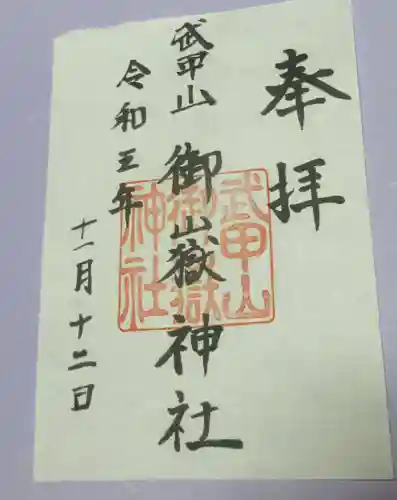 奉拝
武甲山
御嶽山嶽神社
令和五年
十一月十二日
武甲山
御嶽
神社